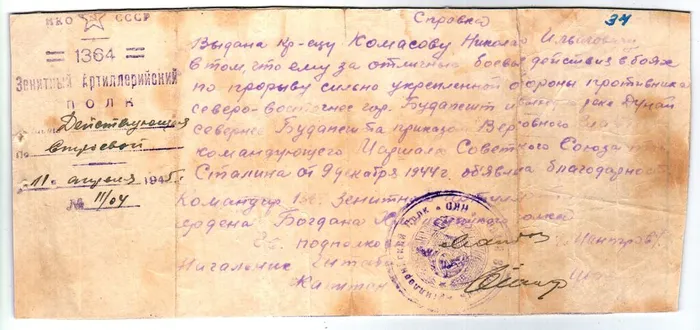 НКО СССР
= 1364 =
Зенитный Артиллерийский
ПОЛК
Действующая
По Строевой
"11" апреля 1945 г.
№ 11/04
34
Справка
Выдана кр-цу Комасову Николаю Ильичу
в том, что ему за отличные боевые действия в боях
по прорыву сильно укрепленной обороны противника
северо-восточнее гор. Будапешт и реки Дунай
севернее Будапешта приказом Верховного
командующего Маршала Советского Союза
Сталина от 9 декабря 1944 г. объявлена благодарность
Командир зенитно
ордена Богдана полка
Гв. подполков
Начальник Штаба
Капитан